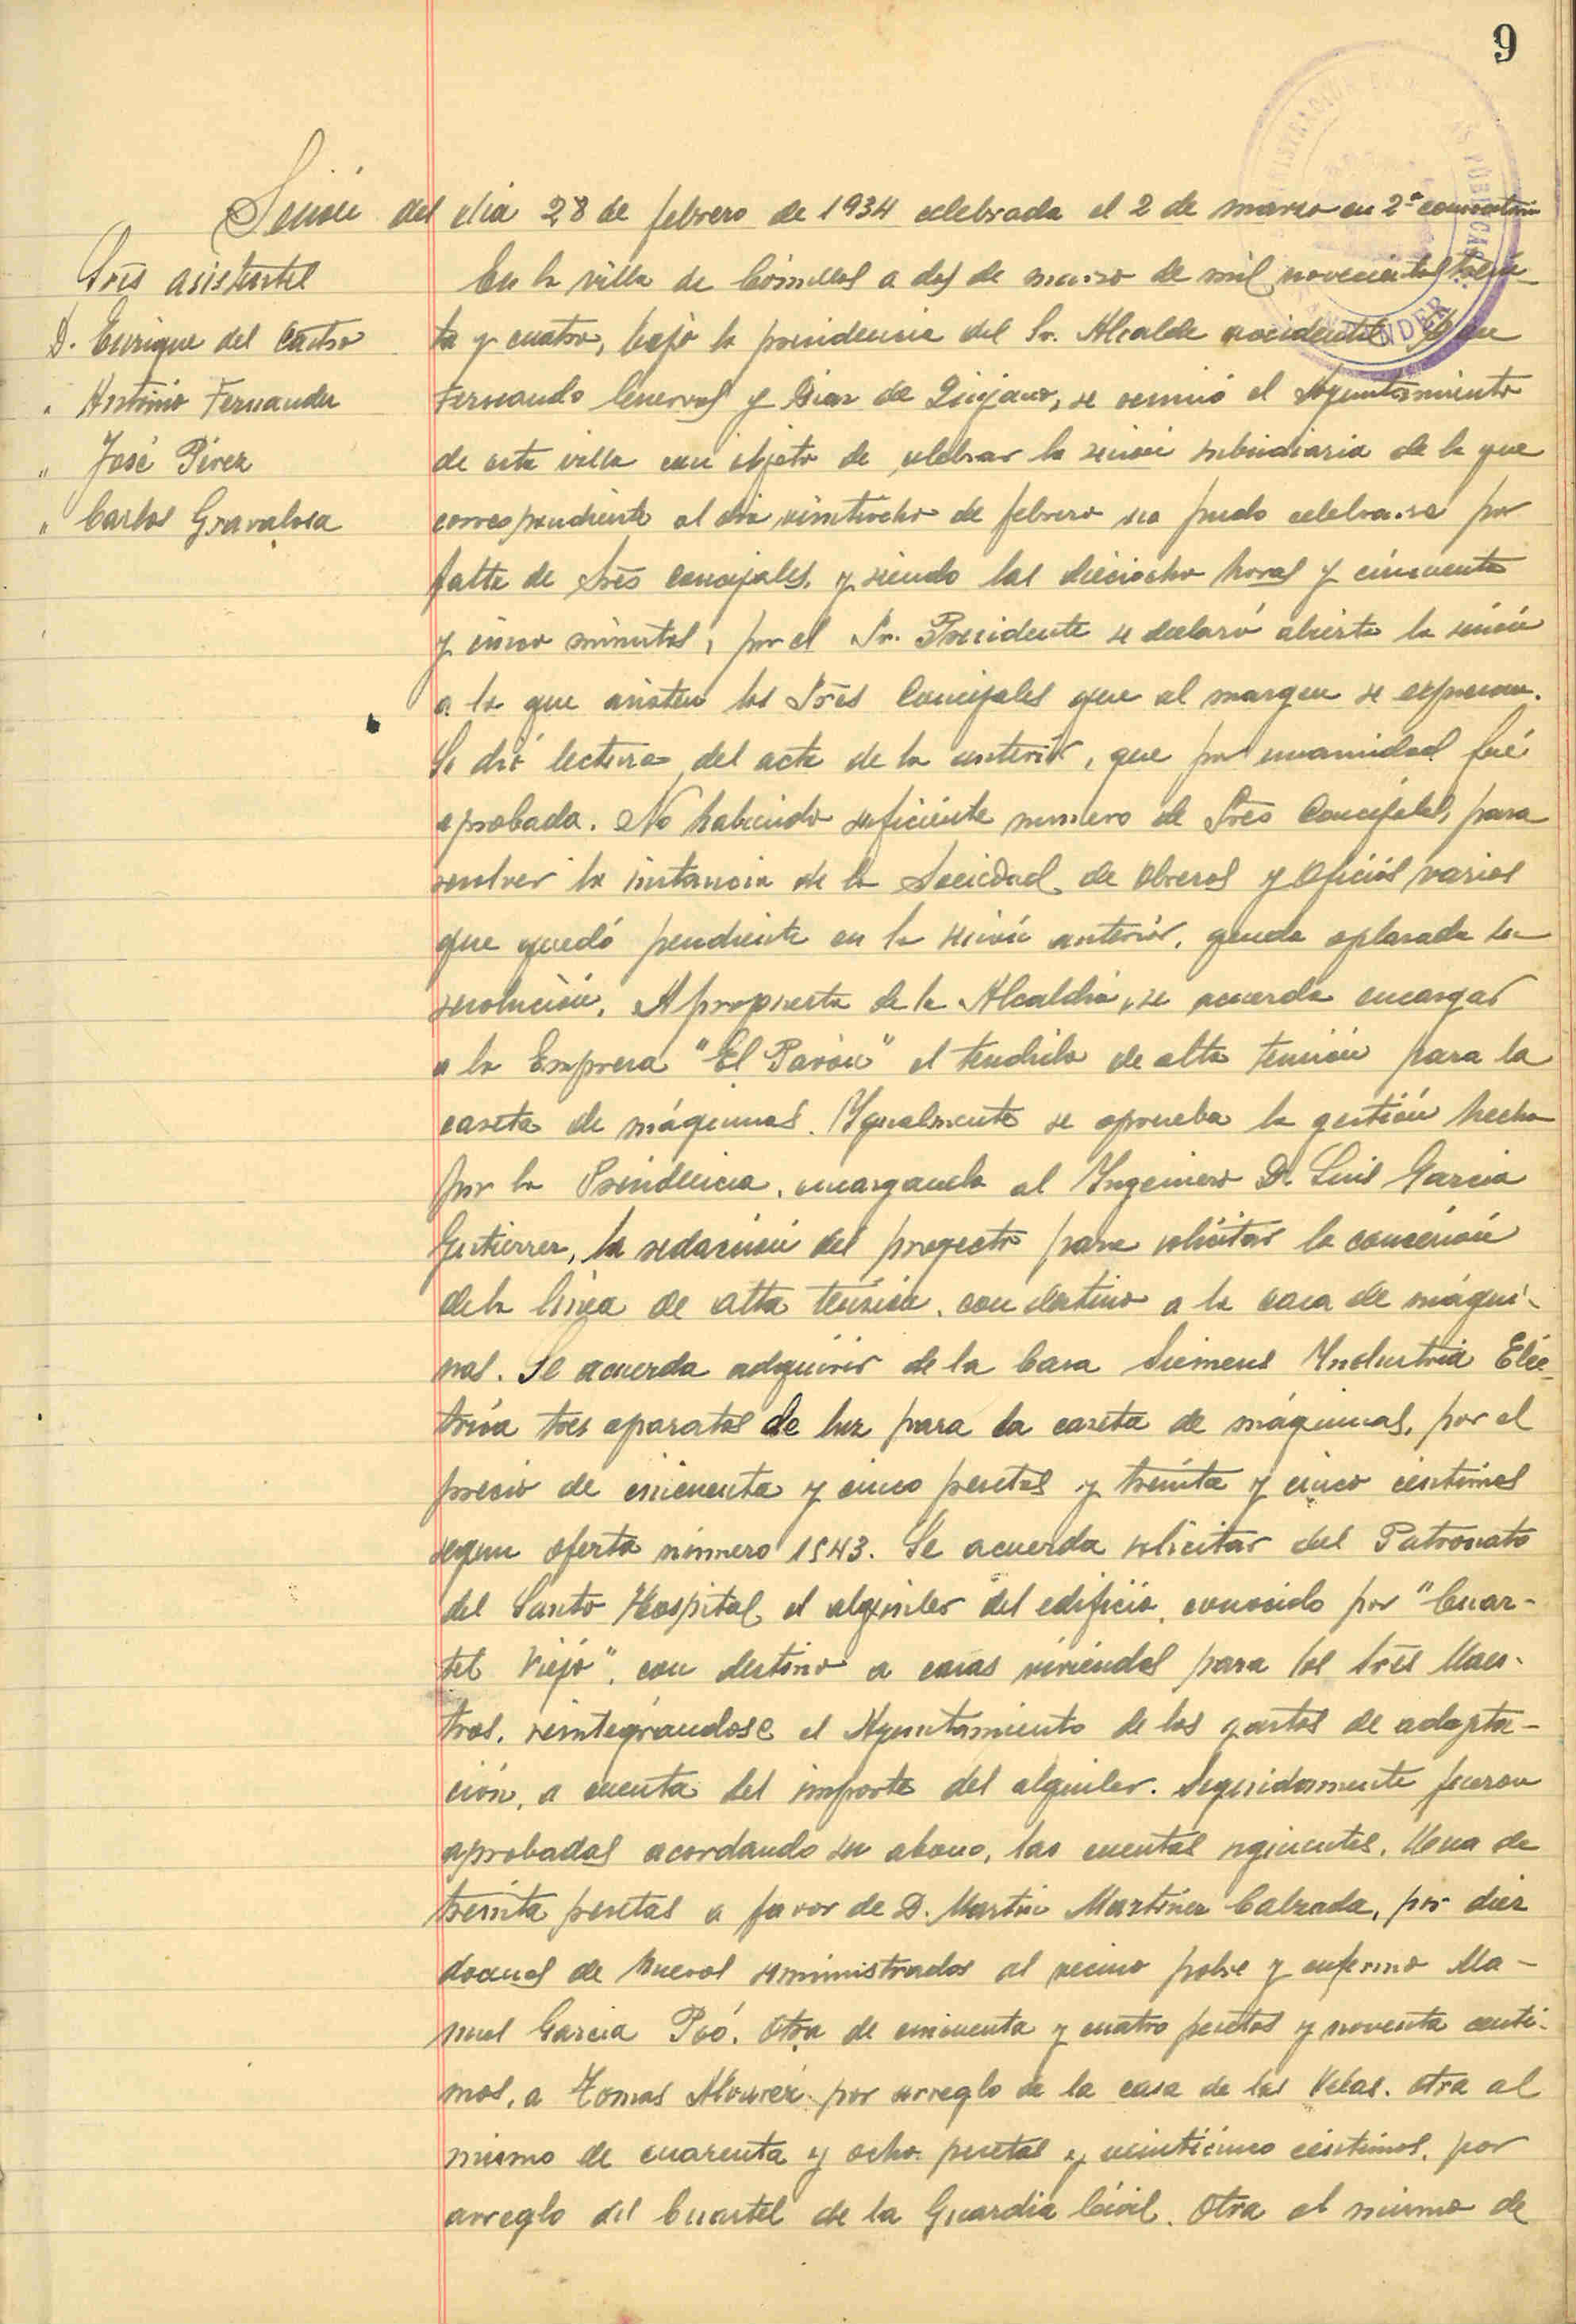 9
Sesión del dia 28 de febrero de 1934 celebrada el 2 de marzo en 2ª convocatoria
Sres asistentes
D. Enrique del Castro
" Antonio Fernandez
" José Pérez
" Carlos Gravalosa
En la villa de Comillas a dos de marzo de mil novecientos trein-
ta y cuatro, bajo la presidencia del Sr. Alcalde accidental Don
Fernando Generos y Diaz de Quijano, se reunió el Ayuntamiento
de esta villa con objeto de celebrar la sesión subsidiaria de la que
correspondiente al dia veintiocho de febrero no pudo celebrarse por
falta de Sres Concejales, y siendo las dieciocho horas y cincuenta
y cinco minutos, por el Sr. Presidente se declaró abierta la sesión
a la que asisten los Sres Concejales que al margen se expresan.
Se dió lectura del acta de la anterior, que por unanimidad fué
aprobada. No habiendo suficiente numero de Sres Concejales, para
resolver la instancia de la Sociedad de Obreros y Oficios varios
que quedó pendiente en la sesión anterior, queda aplazada su
resolución. A propuesta de la Alcaldia, se acuerda encargar
a la Empresa "El Pavón" el tendido de alta tensión para la
caseta de máquinas. Ygualmente se aprueba la gestión hecha
por la Presidencia, encargando al Yngeniero D. Luis Garcia
Gutierrez, la redacción del proyecto para solicitar la concesión
de la linea de alta tensión, con destino a la casa de máqui-
nas. Se acuerda adquirir de la Casa Siemens Yndustria Eléc-
trica tres aparatos de luz para la caseta de máquinas, por el
precio de cincuenta y cinco pesetas y treinta y cinco centimos
segun oferta número 1543. Se acuerda solicitar del Patronato
del Santo Hospital el alquiler del edificio, conocido por "Cuar-
tel Viejo", con destino a casas viviendas para los tres Maes-
tros, reintegrándose el Ayuntamiento de los gastos de adapta-
ción, a cuenta del importe del alquiler. Seguidamente fueron
aprobadas acordando su abono, las cuentas siguientes. Una de
treinta pesetas a favor de D. Martin Martinez Calzada, por diez
docenas de huevos suministrados al vecino pobre y enfermo Ma-
nuel Garcia Poó. Otra de cincuenta y cuatro pesetas y noventa centi-
mos, a Tomas Alvarez por arreglo de la casa de las Velas. Otra al
mismo de cuarenta y ocho pesetas y veinticinco centimos, por
arreglo del Cuartel de la Guardia Civil. Otra al mismo de